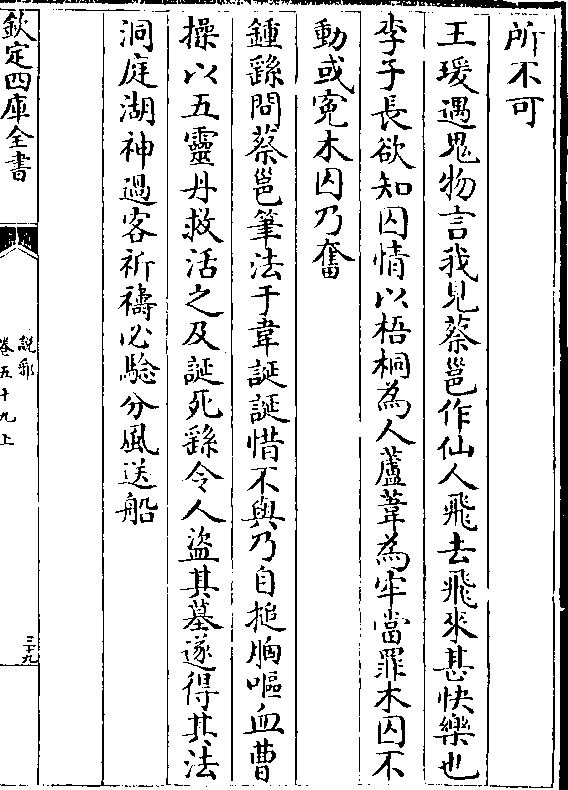 所不可
王瑗遇鬼物言我見蔡邕作仙人飛去飛來甚快樂也
李子長欲知囚情以梧桐為人蘆葦為牢當罪木囚不
動或寃木囚乃奮
鍾繇問蔡邕筆法于韋誕誕惜不與乃自搥胸嘔血曹
操以五靈丹救活之及誕死繇令人盜其墓遂得其法
洞庭湖神過客祈禱必驗分風送船
欽定四庫全書
說郛
卷五十九上
三十九